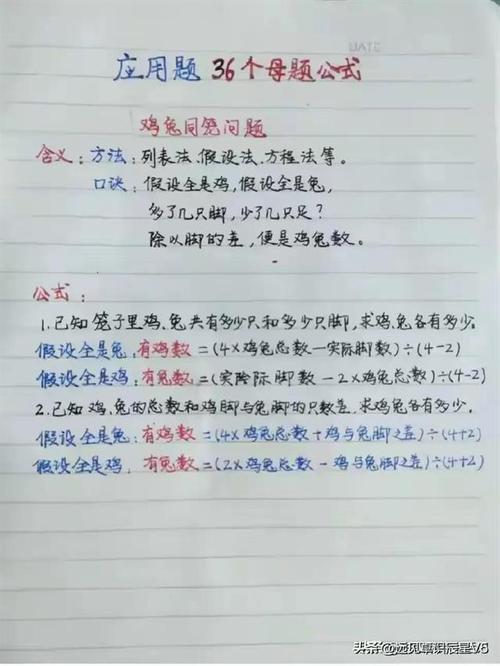 应用题 36个母题公式
鸡兔同笼问题
含义：方法：列表法、假设法、方程法等。
口诀：假设全是鸡，假设全是兔，
多了几只脚，少了几只足？
除以脚的差，便是鸡兔数。
公式：
1.已知笼子里鸡、兔共有多少只和多少只脚，求鸡、兔各有多少。
假设全是兔：有鸡数=(4×鸡兔总数-实际脚数)÷(4-2)
假设全是鸡：有兔数=(实际际脚数-2×鸡兔总数)÷(4-2)
2.已知鸡、兔的总数和鸡脚与兔脚的只数差，求鸡兔各有多少。
假设全是兔：有鸡数=(4×鸡兔总数+鸡与兔脚之差)÷(4+2)
假设全是鸡，有兔数=(2×鸡兔总数-鸡与兔脚之差)÷(4+2)
头条@远见